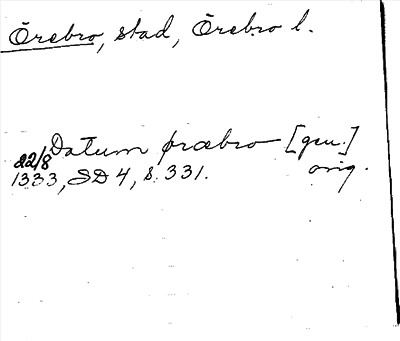 Örebro, stad, Örebro l.
Datum ørabro [gen.]
22/8
1333, SD 4, s. 331. orig.